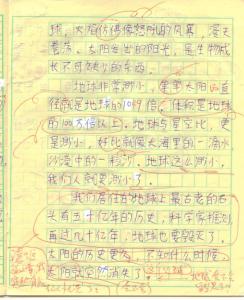 球，太陽仿佛像怒吼的风暴，漫天
卷落。太阳发出的阳光，是生物成
长不可缺少的东西。
地球非常渺小，单单太阳的直
径就是地球的109倍，体积是地球
的100万倍以上。地球与星空比，更
是渺小，好比就像大海里的一滴水
沙漠中的一粒沙。地球这么渺小，
我们人就更渺小了。
我们居住的地球上最古老的石
头有五十亿年的历史，科学家推测
再过九十亿年，地球也要毁灭了，
太阳的历史更久，不知什么时候，
太阳就空然消失了